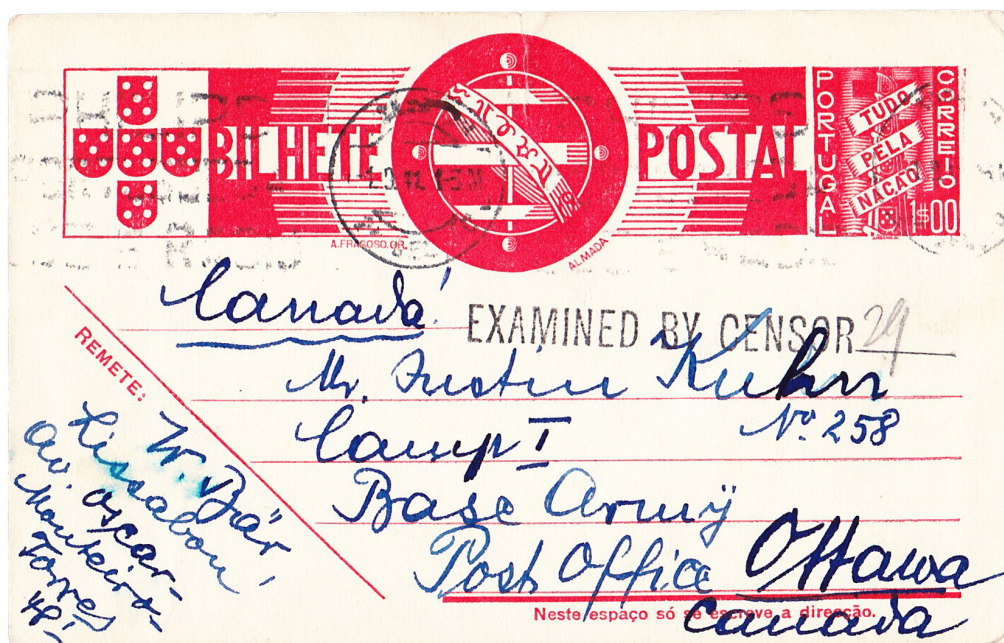 BILHETE POSTAL
PORTUGAL
CORREIO
TUDO
PELA
NAÇÃO
1$00
A. FRAGOSO. GR.
ALMADA
Canadá
EXAMINED BY CENSOR 29
Mr. Justin Kuhn
Nº 258
Camp I
Base Army
Post Office Ottawa
Canada
REMETE:
W. Bär
Lissabon,
Av. Oscar-
Monteiro-
Torres
48
Neste espaço só se escreve a direcção.